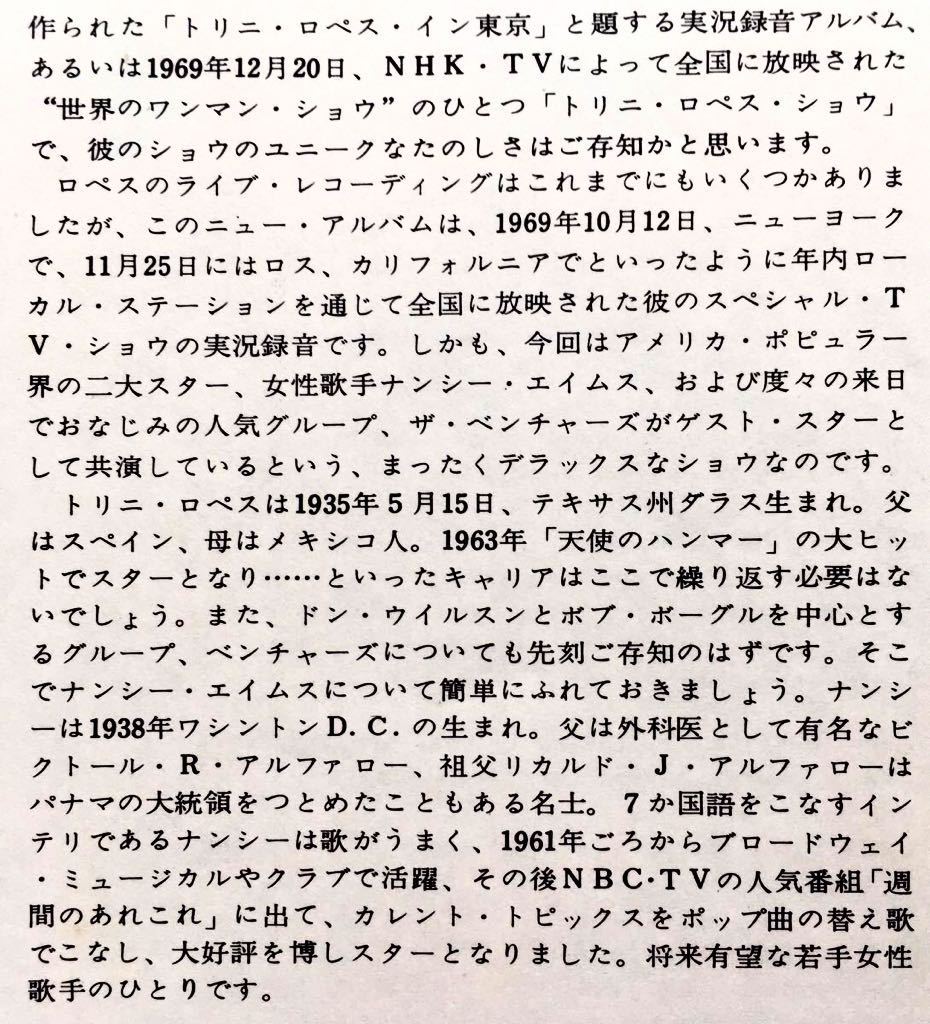 作られた「トリニ・ロペス・イン東京」と題する実況録音アルバム、
あるいは1969年12月20日、NHK・TVによって全国に放映された
“世界のワンマン・ショウ”のひとつ「トリニ・ロペス・ショウ」
で、彼のショウのユニークなたのしさはご存知かと思います。
ロペスのライブ・レコーディングはこれまでにもいくつかありま
したが、このニュー・アルバムは、1969年10月12日、ニューヨーク
で、11月25日にはロス、カリフォルニアでといったように年内ロー
カル・ステーションを通じて全国に放映された彼のスペシャル・T
V・ショウの実況録音です。しかも、今回はアメリカ・ポピュラー
界の二大スター、女性歌手ナンシー・エイムス、および度々の来日
でおなじみの人気グループ、ザ・ベンチャーズがゲスト・スターと
して共演しているという、まったくデラックスなショウなのです。
トリニ・ロペスは1935年5月15日、テキサス州ダラス生まれ。父
はスペイン、母はメキシコ人。1963年「天使のハンマー」の大ヒッ
トでスターとなり……といったキャリアはここで繰り返す必要はな
いでしょう。また、ドン・ウイルスンとボブ・ボーグルを中心とす
るグループ、ベンチャーズについても先刻ご存知のはずです。そこ
でナンシー・エイムスについて簡単にふれておきましょう。ナンシ
ーは1938年ワシントンD.C.の生まれ。父は外科医として有名なビ
クトール・R・アルファロー、祖父リカルド・J・アルファローは
パナマの大統領をつとめたこともある名士。7か国語をこなすイン
テリであるナンシーは歌がうまく、1961年ごろからブロードウェイ
・ミュージカルやクラブで活躍、その後NBC・TVの人気番組「週
間のあれこれ」に出て、カレント・トピックスをポップ曲の替え歌
でこなし、大好評を博しスターとなりました。将来有望な若手女性
歌手のひとりです。